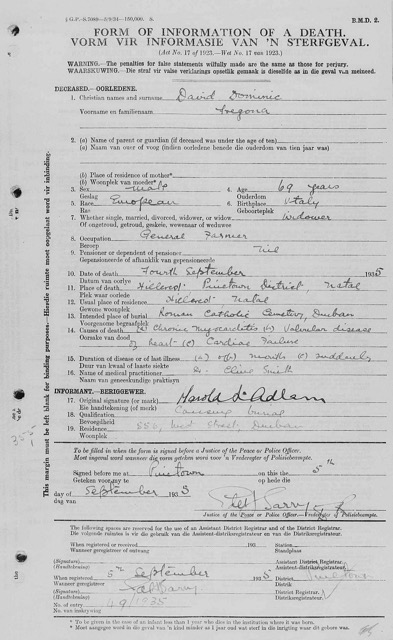 B.M.D. 2.
FORM OF INFORMATION OF A DEATH.
VORM VIR INFORMASIE VAN 'N STERFGEVAL.
(Act No. 17 of 1923.—Wet No. 17 van 1923.)
WARNING.—The penalties for false statements wilfully made are the same as those for perjury.
WAARSKUWING.—Die straf vir valse verklarings opsetlik gemaak is dieselfde as in die geval van meineed.
DECEASED.—OORLEDENE.
1. Christian names and surname David Dominic
Voorname en familienaam
2. (a) Name of parent or guardian (if deceased was under the age of ten)
(a) Naam van ouer of voog (indien oorledene benede die ouderdom van tien jaar was)
(b) Place of residence of mother*
(b) Woonplek van moeder*
3. Sex male 4. Age 69 years
Geslag Ouderdom
5. Race European 6. Birthplace Italy
Ras Geboorteplek
7. Whether single, married, divorced, widower, or widow Widower
Of ongetroud, getroud, geskeie, wewenaar of weduwee
8. Occupation General Farmer
Beroep
9. Pensioner or dependent of pensioner
Gepensioeneerde of afhanklik van gepensioeneerde
10. Date of death Fourth September 1935
Datum van oorlye
11. Place of death Hillcrest Pinetown District, Natal
Plek waar oorlede
12. Usual place of residence Hillcrest Natal
Gewone woonplek
13. Intended place of burial Roman Catholic Cemetery, Durban
Voorgenome begraafplek
14. Causes of death (a) Chronic Myocarditis (b) Valvular disease
Oorsake van dood of heart (c) Cardiac Failure
15. Duration of disease or of last illness (a) (b) months (c) suddenly
Duur van kwaal of laaste siekte
16. Name of medical practitioner Dr. Clive Smith
Naam van geneeskundige praktisyn
INFORMANT.—BERIGGEWER.
17. Original signature (or mark) Harold Adlam
Eie handtekening (of merk)
18. Qualification Causing burial
Bevoegdheid
19. Residence West Street, Durban
Woonplek
This margin must be left blank for binding purposes.—Hierdie ruimte moet oopgelaat word vir inbinding.
To be filled in when the form is signed before a Justice of the Peace or Police Officer.
Moet ingevul word wanneer die vorm geteken word voor 'n Vrederegter of Polisiebeampte.
Signed before me at Pinetown on this the 5th
Geteken voor my te op hede die
day of September 1935
dag van
Justice of the Peace or Police Officer.—Vrederegter of Polisiebeampte.
The following spaces are reserved for the use of an Assistant District Registrar and of the District Registrar.
Die volgende ruimtes is vir die gebruik van die Assistent-distriksregistrateur en die Distriksregistrateur.
When registered or received 193 Station
Wanneer geregistreer of ontvang Standplaas
(Signature) Assistant District Registrar.
(Handtekening) Assistent-distriksregistrateur.
When registered 5th September 1935 District Pinetown
Wanneer geregistreer Distrik
(Signature) District Registrar.
(Handtekening) Distriksregistrateur.
No. of entry 49/1935
No. van inskrywing
* To be given in the case of an infant less than 1 year who died in the institution where it was born.
* Moet aangegee word in die geval van 'n kind minder as 1 jaar oud wat sterf in die inrigting waar dit gebore was.